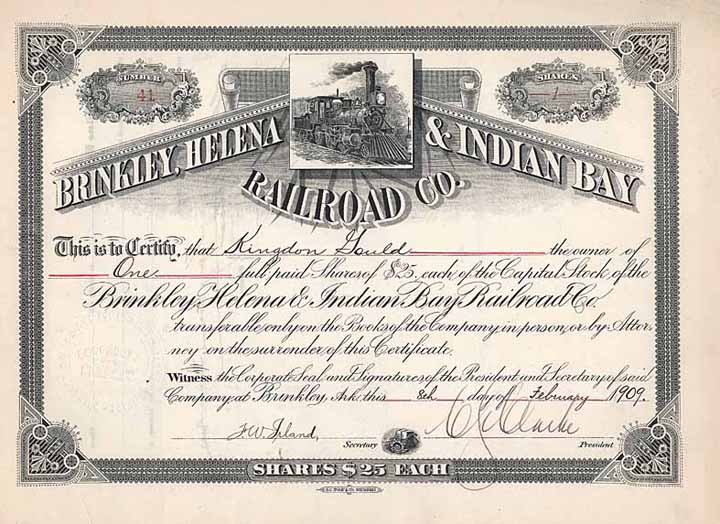 NUMBER
41
SHARES
1
BRINKLEY, HELENA & INDIAN BAY
RAILROAD CO.
This is to Certify, that Kingdon Gould the owner of
One full paid Shares of $25. each of the Capital Stock of the
Brinkley, Helena & Indian Bay Railroad Co.
transferable only on the Books of the Company in person, or by Attor-
ney on the surrender of this Certificate.
Witness the Corporate Seal and Signatures of the President and Secretary of said
Company, at Brinkley, Ark. this 8th day of February 1909.
Secretary
President
SHARES $25 EACH